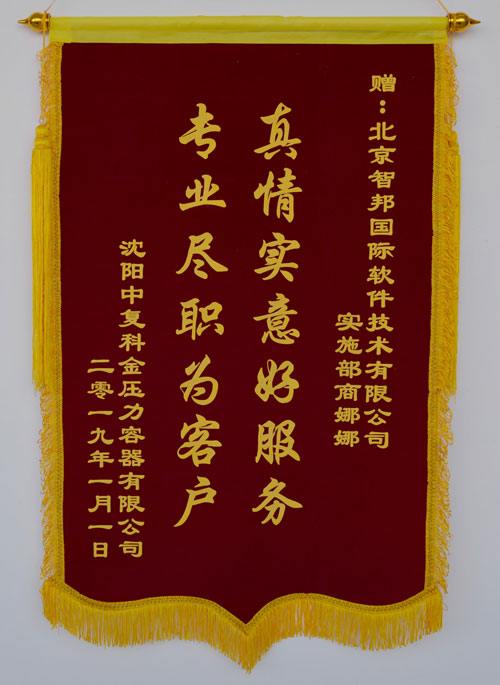 赠：北京智邦国际软件技术有限公司
实施部商娜娜
真情实意好服务
专业尽职为客户
沈阳中复科金压力容器有限公司
二零一九年一月一日